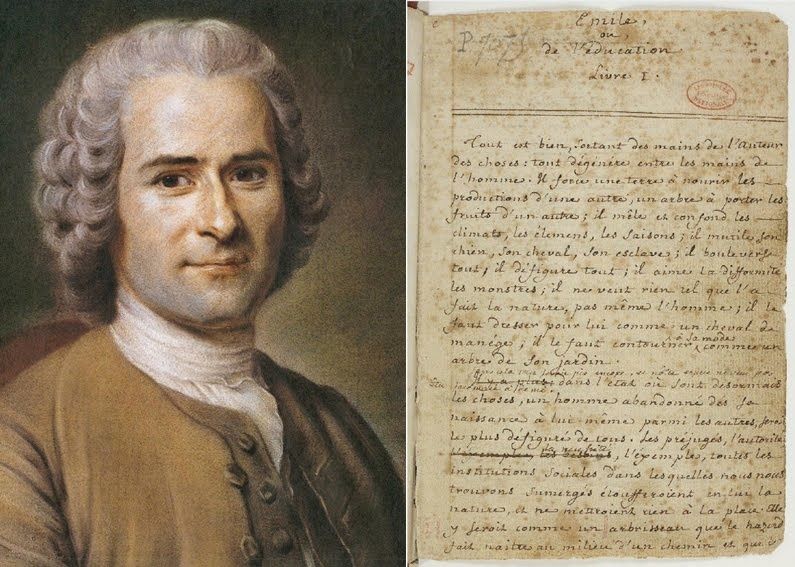 Emile,
ou,
de l'éducation
Livre I.
Tout est bien, sortant des mains de l'Auteur
des choses: tout dégénère entre les mains de
l'homme. Il force une terre à nourir les
productions d'une autre, un arbre à porter les
fruits d'un autre; il mêle et confond les
climats, les élemens, les saisons; il mutile son
chien, son cheval, son esclave; il bouleverse
tout, il défigure tout; il aime la difformité
les monstres; il ne veut rien tel que l'a
fait la nature, pas même l'homme; il le
faut dresser pour lui comme un cheval de
manège; il le faut contourner à sa mode comme un
arbre de son jardin.
dans l'état où sont desormais
les choses, un homme abandonné dès sa
naissance à lui même parmi les autres, sera
le plus défiguré de tous. Les préjugés, l'autorité
l'éxemple, toutes les
institutions sociales dans lesquelles nous nous
trouvons sumergés étoufferoient en lui la
nature, et ne mettroient rien à la place. Elle
y seroit comme un arbrisseau que le hazard
fait naitre au milieu d'un chemin et que